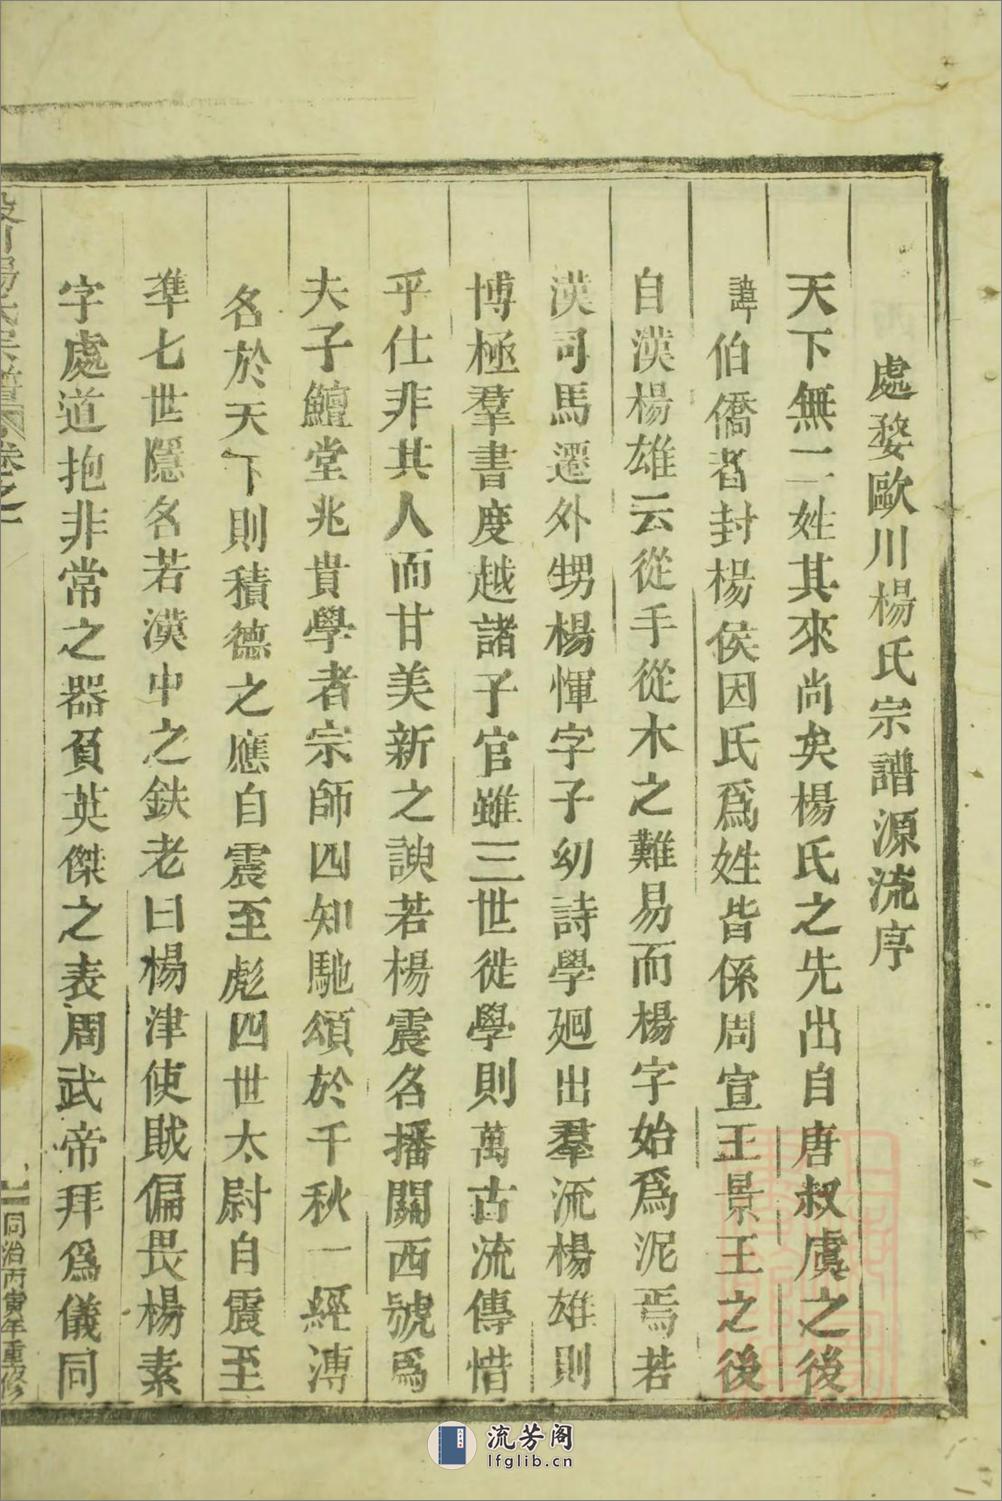 處婺歐川楊氏宗譜源流序
天下無二姓其來尚矣楊氏之先出自唐叔虞之後
諱伯僑者封楊侯因氏爲姓皆係周宣王景王之後
自漢楊雄云從手從木之難易而楊字始爲泥焉若
漢司馬遷外甥楊惲字子幼詩學廻出羣流楊雄則
博極羣書度越諸子官雖三世徙學則萬古流傳惜
乎仕非其人而甘美新之諛若楊震名播關西號爲
夫子鱣堂兆貴學者宗師四知馳頌於千秋一經溥
名於天下則積德之應自震至彪四世太尉自震至
準七世隱名若漢中之鈇老曰楊津使賊偏畏楊素
字處道抱非常之器負英傑之表周武帝拜爲儀同
川楊氏宗譜 卷之一
一 同治丙寅年重修
流芳阁
lfglib.cn